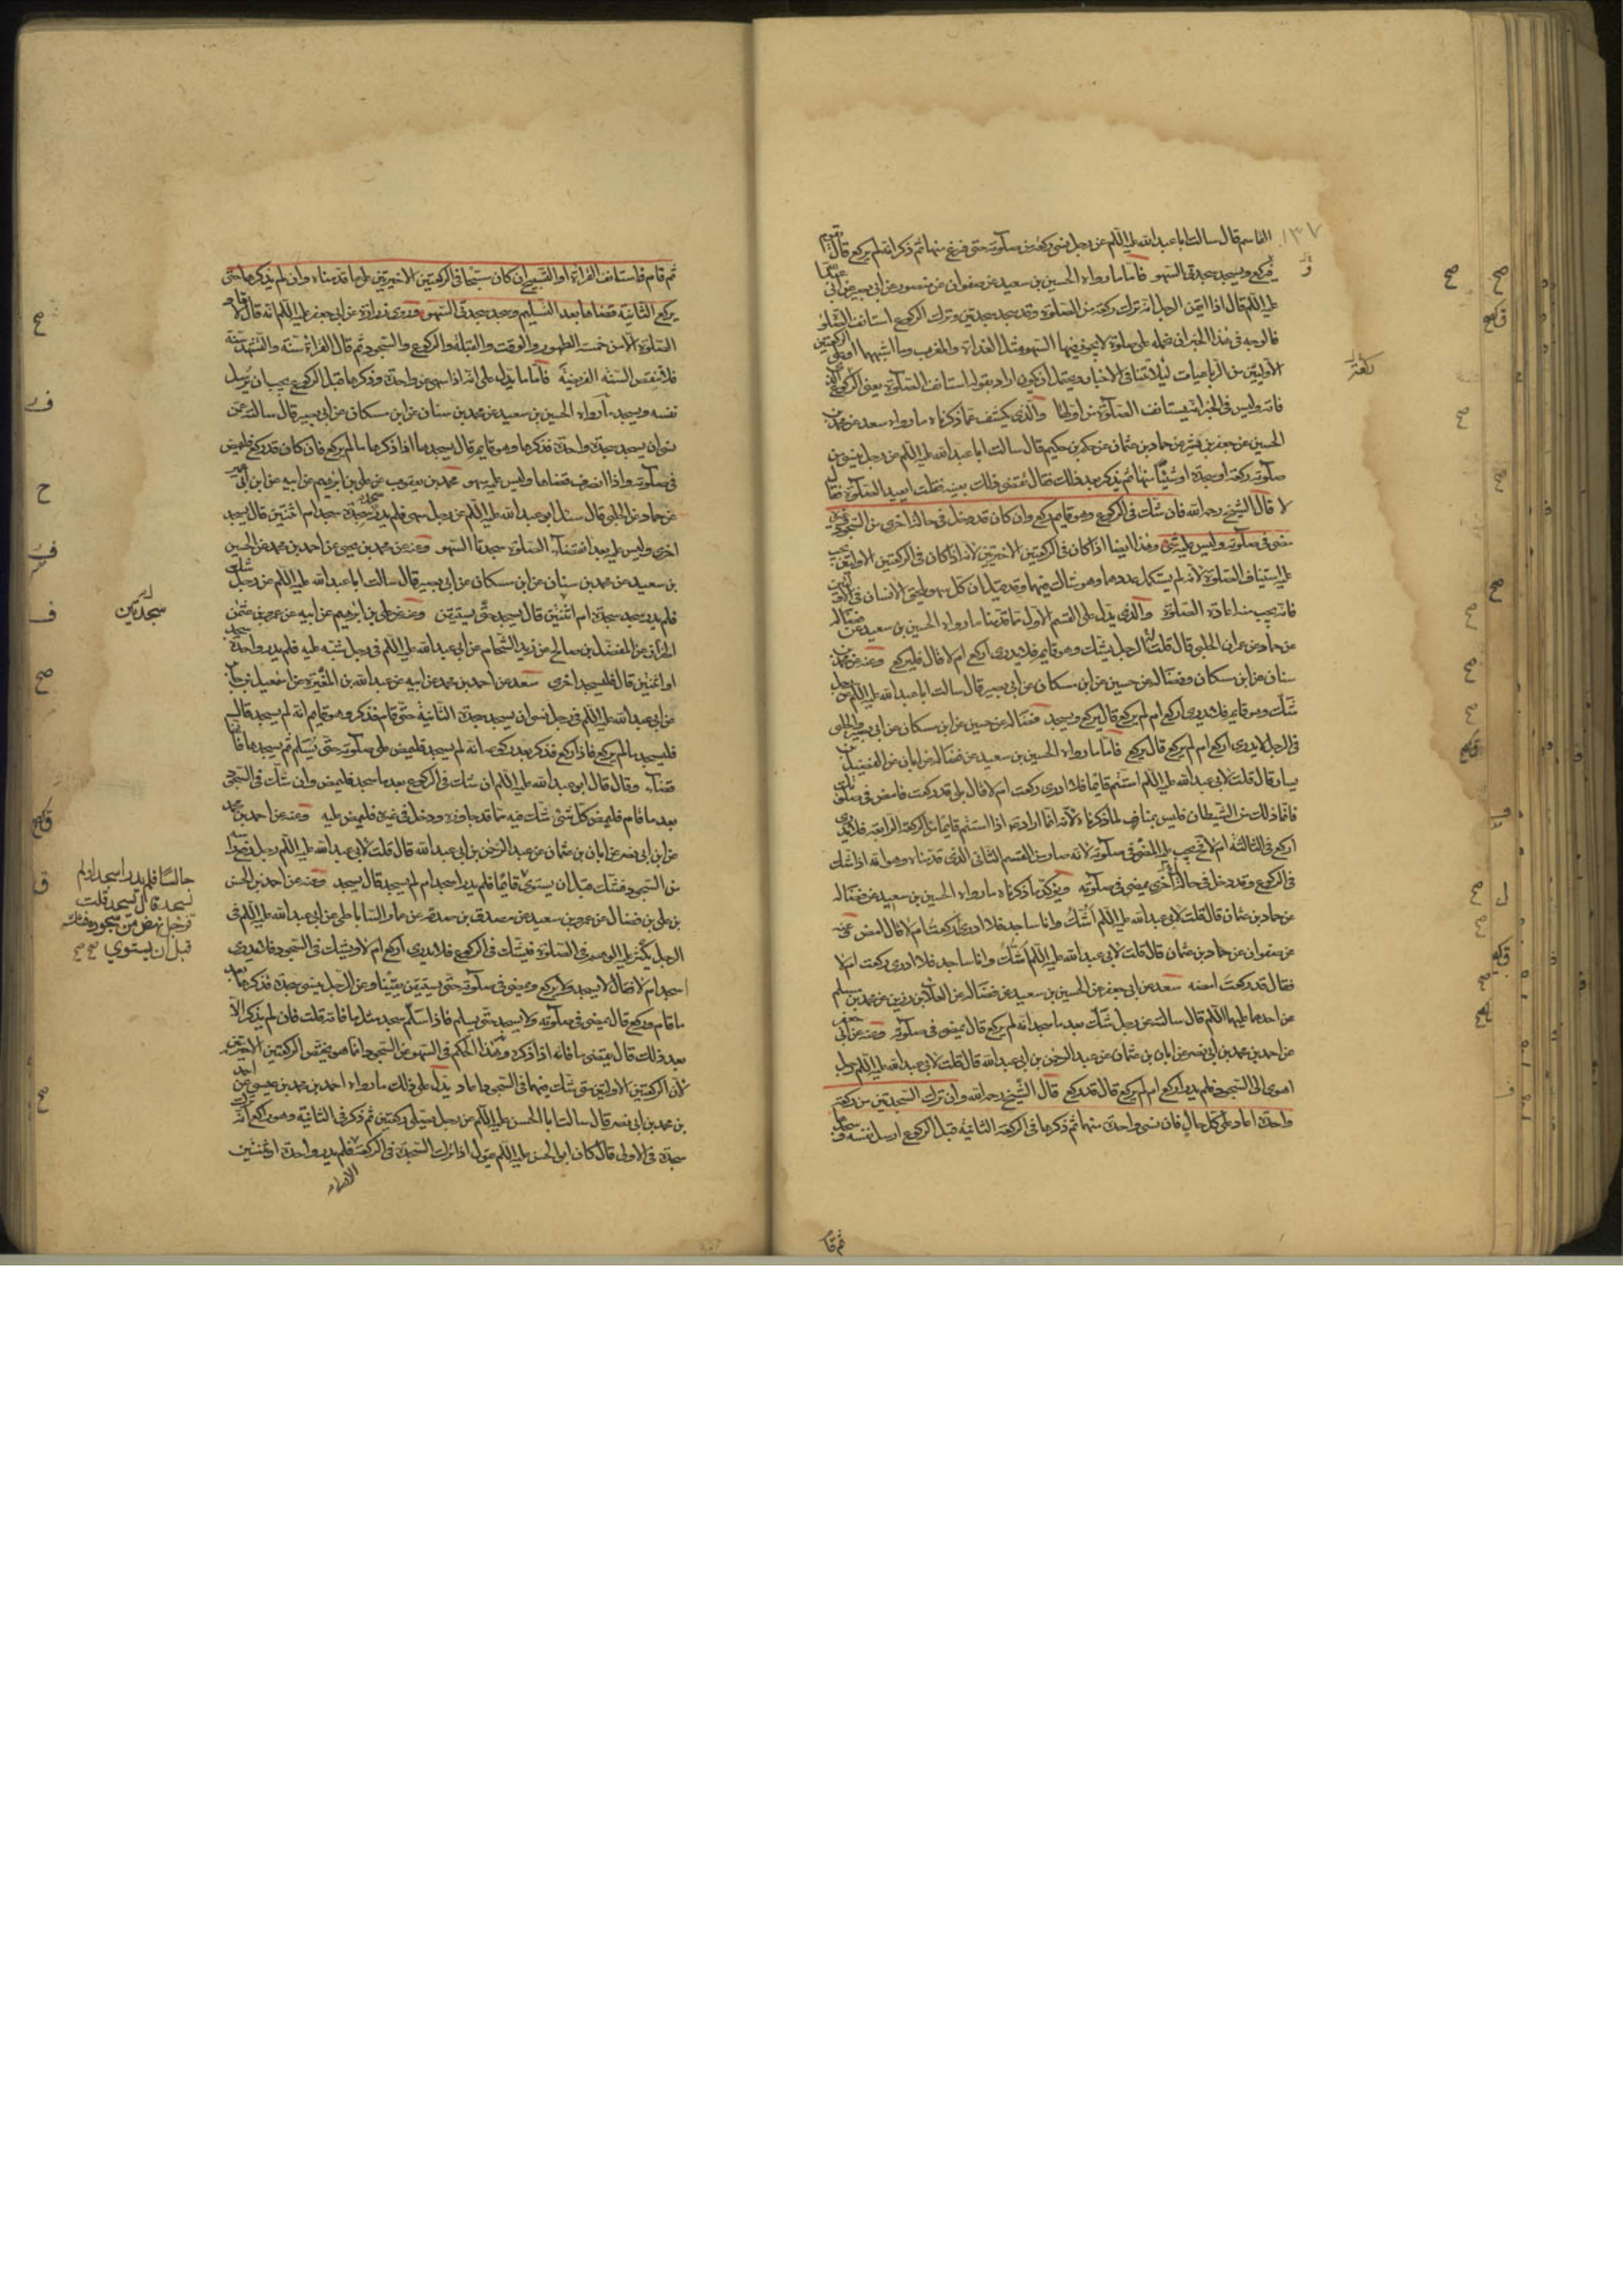 ١٣٧
القاسم قال سالت ابا عبد الله عليه السلم عن رجل نسى ركعة من صلوته حتى فرغ منها ثم ذكر انه لم يركع قال يقوم
فيركع ويسجد سجدتى السهو فاما ما رواه الحسين بن سعيد عن صفوان عن منصور عن ابى بصير عن ابى عبد الله
عليه السلم قال اذا ايقن الرجل انه ترك ركعة من الصلوة وقد سجد سجدتين وترك الركوع استانف الصلوة
فالوجه فى هذا الخبر ان نحمله على صلوة لا يجوز فيها السهو مثل الغداة والمغرب وما اشبهها او على الركعتين
الاوليين من الرباعيات لئلا تتنافى الاخبار ويحتمل ان يكون اراد بقوله استانف الصلوة يعنى الركوع
فانه وليس فى الخبر انه يستانف الصلوة من اولها والذى يكشف عما ذكرناه ما رواه سعد عن محمد بن
الحسين عن جعفر بن بشير عن حماد بن عثمان عن حكم بن حكيم قال سالت ابا عبد الله عليه السلم عن رجل ينسى من
صلوته ركعة او سجدة او شيئا منها ثم يذكر بعد ذلك فقال يقضى ذلك بعينه فقلت ايعيد الصلوة فقال
لا قال الشيخ رحمه الله فان شك فى الركوع وهو قايم ركع وان كان قد دخل فى حالة اخرى من السجود وغيره
مضى فى صلوته وليس عليه شىء وهذا ايضا اذا كان فى الركعتين الاخيرتين لانه اذا كان فى الركعتين الاوليين يجب
عليه استيناف الصلوة لانه لم يستكمل عددها وهو شاك فيها وقد قيل ان كل سهو يلحق الانسان فى الاوليين
فانه يجب منه اعادة الصلوة والذى يدل على القسم الاول ما قدمنا ما رواه الحسين بن سعيد عن فضالة
عن حماد عن عمران الحلبى قال قلت الرجل يشك وهو قايم فلا يدرى اركع ام لا قال فليركع وعنه عن محمد بن
سنان عن ابن مسكان وفضالة عن حسين عن ابن مسكان عن ابى بصير قال سالت ابا عبد الله عليه السلم عن رجل
شك وهو قايم فلا يدرى اركع ام لم يركع قال يركع ويسجد فضالة عن حسين عن ابن مسكان عن ابى بصير والحلبى
فى الرجل لا يدرى اركع ام لم يركع قال يركع فاما ما رواه الحسين بن سعيد عن فضالة عن ابان عن الفضيل بن
يسار قال قلت لابى عبد الله عليه السلم استتم قايما فلا ادرى ركعت ام لا قال بلى قد ركعت فامض فى صلوتك
فانما ذلك من الشيطان فليس بمناف لما ذكرناه لانه انما اراد به اذا استتم قايما من الركعة الرابعة فلا يدرى
اركع فى الثالثة ام لا فيجب عليه المضى فى صلوته لانه صار من القسم الثانى الذى قدمناه وهو انه اذا شك
فى الركوع وقد دخل فى حالة اخرى يمضى فى صلوته ويؤكد ما ذكرناه ما رواه الحسين بن سعيد عن فضالة
عن حماد بن عثمان قال قلت لابى عبد الله عليه السلم اشك وانا ساجد فلا ادرى ركعت ام لا قال امض عنه
عن صفوان عن حماد بن عثمان قال قلت لابى عبد الله عليه السلم اشك وانا ساجد فلا ادرى ركعت ام لا
فقال قد ركعت امضه سعد عن ابى جعفر عن الحسين بن سعيد عن فضالة عن العلاء بن رزين عن محمد بن مسلم
عن احدهما عليهما السلم قال سالته عن رجل شك بعد ما سجد انه لم يركع قال يمضى فى صلوته وعنه عن ابى جعفر
عن احمد بن محمد بن ابى نصر عن ابان بن عثمان عن عبد الرحمن بن ابى عبد الله قال قلت لابى عبد الله عليه السلم رجل
اهوى الى السجود فلم يدر اركع ام لم يركع قال قد ركع قال الشيخ رحمه الله وان ترك السجدتين من ركعة
واحدة اعاد على كل حال فان نسى واحدة منها ثم ذكرها فى الركعة الثانية قبل الركوع ارسل نفسه وسجدها
ثم قا
ركعة
ثم قام فاستانف القراءة او التسبيح ان كان مسبحا فى الركعتين الاخيرتين على ما قدمناه وان لم يذكرها حتى
يركع الثانية قضاها بعد التسليم وسجد سجدتى السهو وروى زرارة عن ابى جعفر عليه السلم انه قال لا تعاد
الصلوة الا من خمسة الطهور والوقت والقبلة والركوع والسجود ثم قال القراءة سنة والتشهد سنة
فلا تنقض السنة الفريضة فاما ما يدل على انه اذا سهى عن واحدة وذكرها قبل الركوع يجب ان يرسل
نفسه ويسجد ما رواه الحسين بن سعيد عن محمد بن سنان عن ابن مسكان عن ابى بصير قال سالته عمن
نسى ان يسجد سجدة واحدة فذكرها وهو قايم قال يسجدها اذا ذكرها ما لم يركع فان كان قد ركع فليمض
فى صلوته واذا انصرف قضاها وليس عليه سهو محمد بن يعقوب عن على بن ابرهيم عن ابيه عن ابن ابى عمير
عن حماد عن الحلبى قال سئل ابو عبد الله عليه السلم عن رجل سهى فلم يدر سجد سجدة ام اثنتين قال يسجد
اخرى وليس عليه بعد انقضاء الصلوة سجدتا السهو وعنه عن محمد بن يحيى عن احمد بن محمد عن الحسين
بن سعيد عن محمد بن سنان عن ابن مسكان عن ابى بصير قال سالت ابا عبد الله عليه السلم عن رجل شك
فلم يدر سجد سجدة ام اثنتين قال يسجد حتى يستيقن وعنه عن على بن ابرهيم عن ابيه عن عمرو بن عثمن
الخزاز عن المفضل بن صالح عن زيد الشحام عن ابى عبد الله عليه السلم فى رجل شبه عليه فلم يدر واحدة سجد
او اثنتين قال فليسجد اخرى سعد عن احمد بن محمد عن ابيه عن عبد الله بن المغيرة عن اسمعيل بن جابر
عن ابى عبد الله عليه السلم فى رجل نسى ان يسجد سجدة الثانية حتى قام فذكر وهو قايم انه لم يسجد قال
فليسجد ما لم يركع فاذا ركع فذكر بعد ركوعه انه لم يسجد فليمض على صلوته حتى يسلم ثم يسجدها فانها
قضاء وقال قال ابو عبد الله عليه السلم ان شك فى الركوع بعد ما سجد فليمض وان شك فى السجود
بعد ما قام فليمض كل شىء شك فيه مما قد جاوزه ودخل فى غيره فليمض عليه وعنه عن احمد بن محمد
عن ابن ابى نصر عن ابان بن عثمان عن عبد الرحمن بن ابى عبد الله قال قلت لابى عبد الله عليه السلم رجل رفع راسه
من السجود فشك قبل ان يستوى قائما فلم يدر اسجد ام لم يسجد قال يسجد وعنه عن احمد بن الحسن
بن على بن فضال عن عمرو بن سعيد عن مصدق بن صدقة عن عمار الساباطى عن ابى عبد الله عليه السلم فى
الرجل يكثر عليه الوهم فى الصلوة فيشك فى الركوع فلا يدرى اركع ام لا ويشك فى السجود فلا يدرى
اسجد ام لا فقال لا يسجد ولا يركع ويمضى فى صلوته حتى يستيقن يقينا وعن الرجل ينسى سجدة فذكرها بعد
ما قام وركع قال يمضى فى صلوته ولا يسجد حتى يسلم فاذا سلم سجد مثل ما فاته قلت فان لم يذكر الا
بعد ذلك قال يقضى ما فاته اذا ذكره وهذا الحكم فى السهو عن السجود انما هو يختص الركعتين الاخيرتين
لان الركعتين الاوليين متى شك فيهما فى السجود اعاد يدل على ذلك ما رواه احمد بن محمد بن عيسى عن احمد
بن محمد بن ابى نصر قال سالت ابا الحسن عليه السلم عن رجل يصلى ركعتين ثم ذكر فى الثانية وهو راكع انه ترك
سجدة فى الاولى قال كان ابو الحسن عليه السلم يقول اذا تركت السجدة فى الركعة فلم يدر واحدة او ثنتين
الاولى
سجدتين
جالسا فلم يدر اسجد ام لم
يسجد قال يسجد قلت
فرجل نهض من سجوده فشك
قبل ان يستوي صح